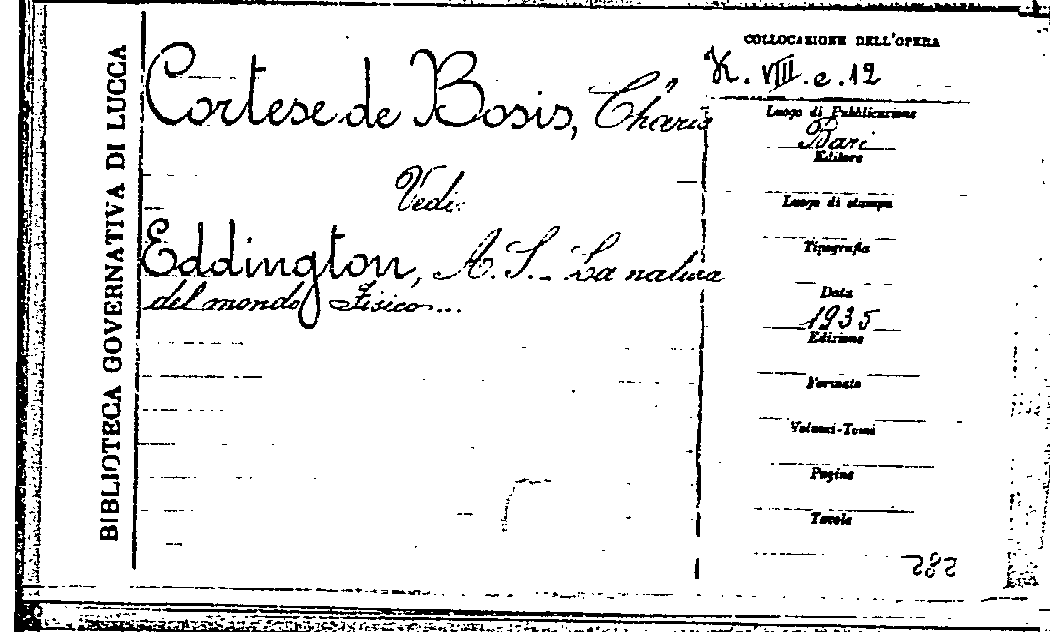 BIBLIOTECA GOVERNATIVA DI LUCCA
Cortese de Bosis, Charis
Vedi:
Eddington, A. S. - La natura
del mondo Fisico...
COLLOCAZIONE DELL'OPERA
K. VIII. c. 12
Luogo di Pubblicazione
Bari
Editore
Luogo di stampa
Tipografia
Data
1935
Edizione
Formato
Volumi-Tomi
Pagine
Tavole
282